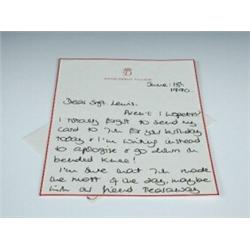 June 15th
1990.
Dear Sgt. Lewis,
Aren't I hopeless!
I totally forgot to send my
card to Tek for his birthday
today & I'm writing instead
to apologise & go down on
bended knee!
I'm sure that Tek made
the most of the day, maybe
with our friend